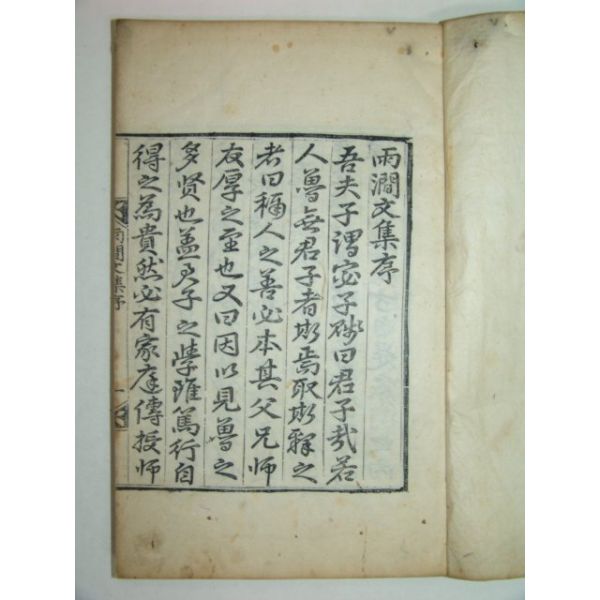 兩澗文集序
吾夫子謂宓子賤曰君子哉若
人魯無君子者斯焉取斯釋之
者曰稱人之善必本其父兄師
友厚之至也又曰因以見魯之
多贤也盖君子之學雖篤行自
得之為貴然必有家庭傳授師
兩澗文集序
一